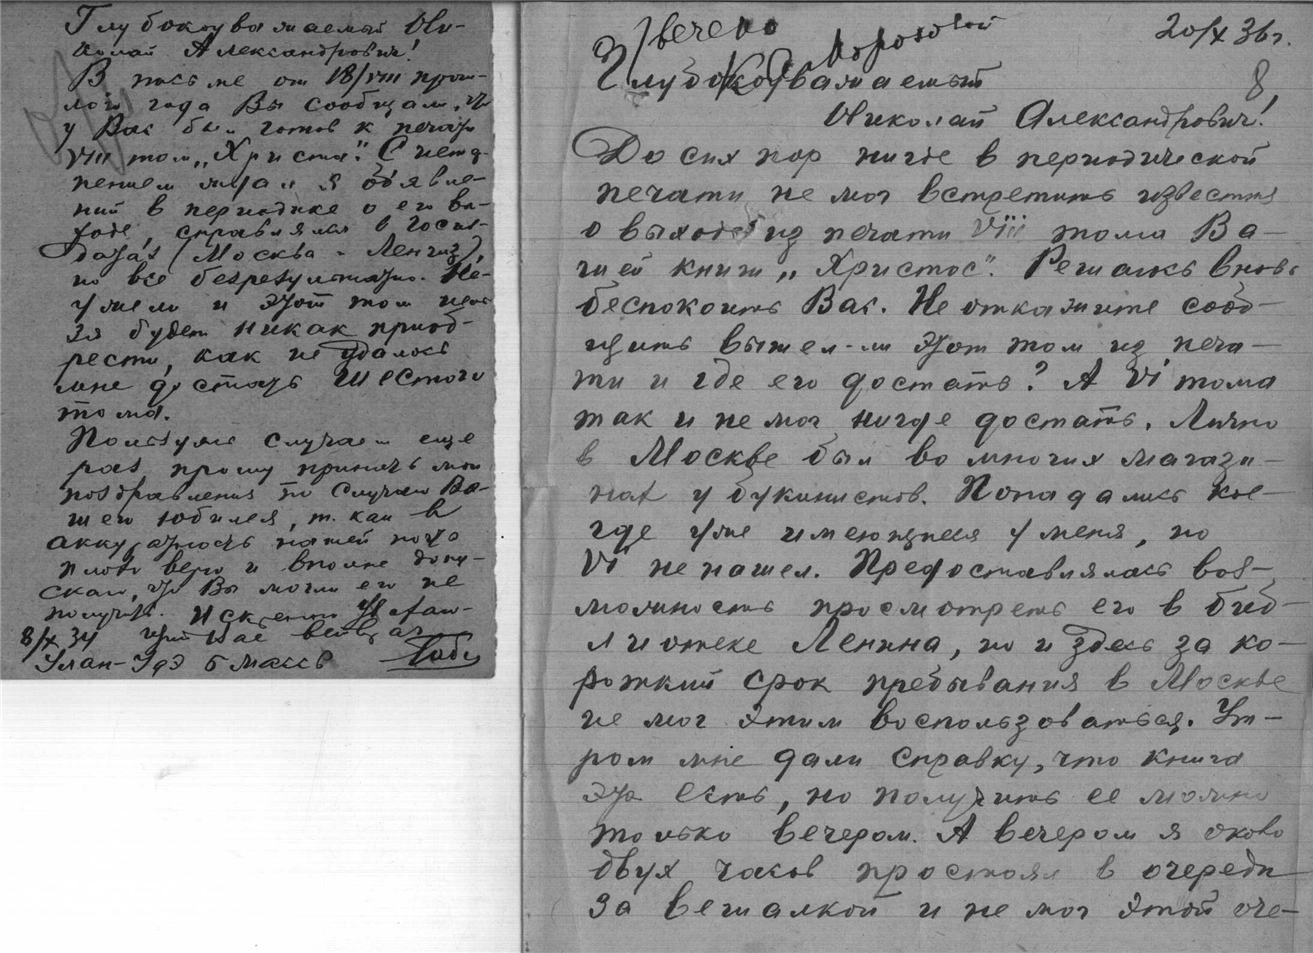 Глубокоуважаемый Ни-
колай Александрович!
В письме от 18/VIII прош-
лого года Вы сообщали, что
у Вас был готов к печати
VIII том „Христа". С нетер-
пением ждал я объявле-
ний в периодике о его вы-
ходе, справлялся в Госиз-
датах (Москва - Ленгиз),
но все безрезультатно. Не-
ужели и этот том нель-
зя будет никак приоб-
рести, как не удалось
мне достать шестого
тома.
Пользуясь случаем еще
раз прошу принять мои
поздравления по случаю Ва-
шего юбилея, т. как в
аккуратность нашей почты
плохо верю и вполне допу-
скаю, что Вы могли его не
получить. Искренно
Вас
8/X 34
Улан-Удэ Б Масс
Отвечено
Морозовой
20/X 36 г.
8
Глубокоуважаемый
Николай Александрович!
До сих пор нигде в периодической
печати не мог встретить известия
о выходе из печати VIII тома Ва-
шей книги „Христос". Решаюсь вновь
беспокоить Вас. Не откажите сооб-
щить вышел-ли этот том из печа-
ти и где его достать? А VI тома
так и не мог нигде достать. Лично
в Москве был во многих магази-
нах у букинистов. Попадались кое-
где уже имеющиеся у меня, но
VI не нашел. Предоставлялась воз-
можность просмотреть его в биб-
лиотеке Ленина, но и здесь за ко-
роткий срок пребывания в Москве
не мог этим воспользоваться. Ут-
ром мне дали справку, что книга
эта есть, но получить ее можно
только вечером. А вечером я около
двух часов простоял в очереди
за вешалкой и не мог этой оче-